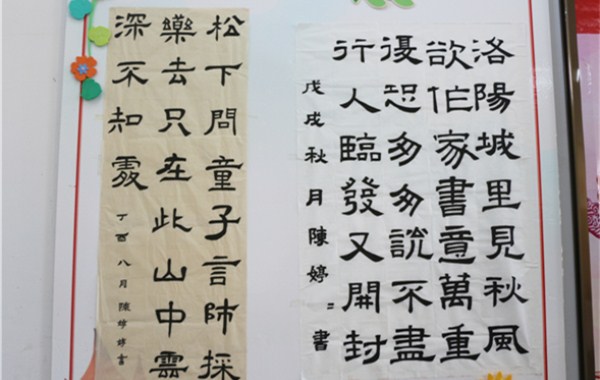 洛陽城里見秋風
欲作家書意萬重
復恐匆匆說不盡
行人臨發又開封
戊戌秋月陳婷〃書
松下問童子言師採
樂去只在此山中雲
深不知處
丁酉八月陳婷婷書